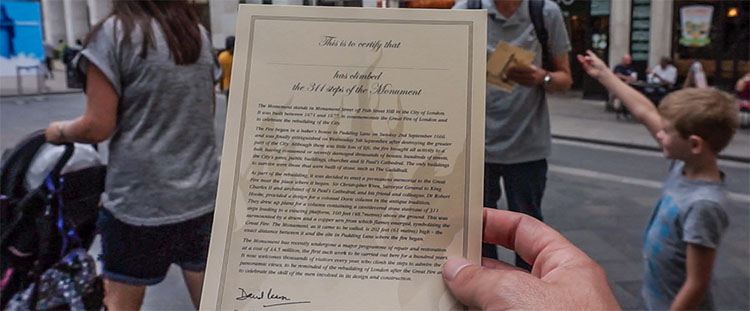 This is to certify that
has climbed
the 311 steps of the Monument
The Monument stands in Monument Street off Fish Street Hill in the City of London.
It was built between 1671 and 1677 to commemorate the Great Fire of London and
to celebrate the rebuilding of the City.
The Fire began in a baker's house in Pudding Lane on Sunday 2nd September 1666
and was finally extinguished on Wednesday 5th September after destroying the greater
part of the City. Although there was little loss of life, the fire brought all activity to a
halt, having consumed or severely damaged thousands of houses, hundreds of streets,
the City's gates, public buildings, churches and St Paul's Cathedral. The only buildings
to survive were those that were built of stone, such as The Guildhall.
As part of the rebuilding, it was decided to erect a permanent memorial to the Great
Fire near the place where it began. Sir Christopher Wren, Surveyor General to King
Charles II and architect of St Paul's Cathedral, and his friend and colleague, Dr Robert
Hooke, provided a design for a colossal Doric column in the antique tradition.
They drew up plans for a column containing a cantilevered stone staircase of 311
steps leading to a viewing platform, 160 feet (48.7metres) above the ground. This was
surmounted by a drum and a copper urn from which flames emerged, symbolising the
Great Fire. The Monument, as it came to be called, is 202 feet (61 metres) high - the
exact distance between it and the site in Pudding Lane where the fire began.
The Monument has recently undergone a major programme of repair and restoration
at a cost of £4.5 million, the first such work to be carried out here for a hundred years
It now welcomes thousands of visitors every year who climb the steps to admire the
panoramic views, to be reminded of the rebuilding of London after the Great Fire and
to celebrate the skill of the men involved in its design and construction.